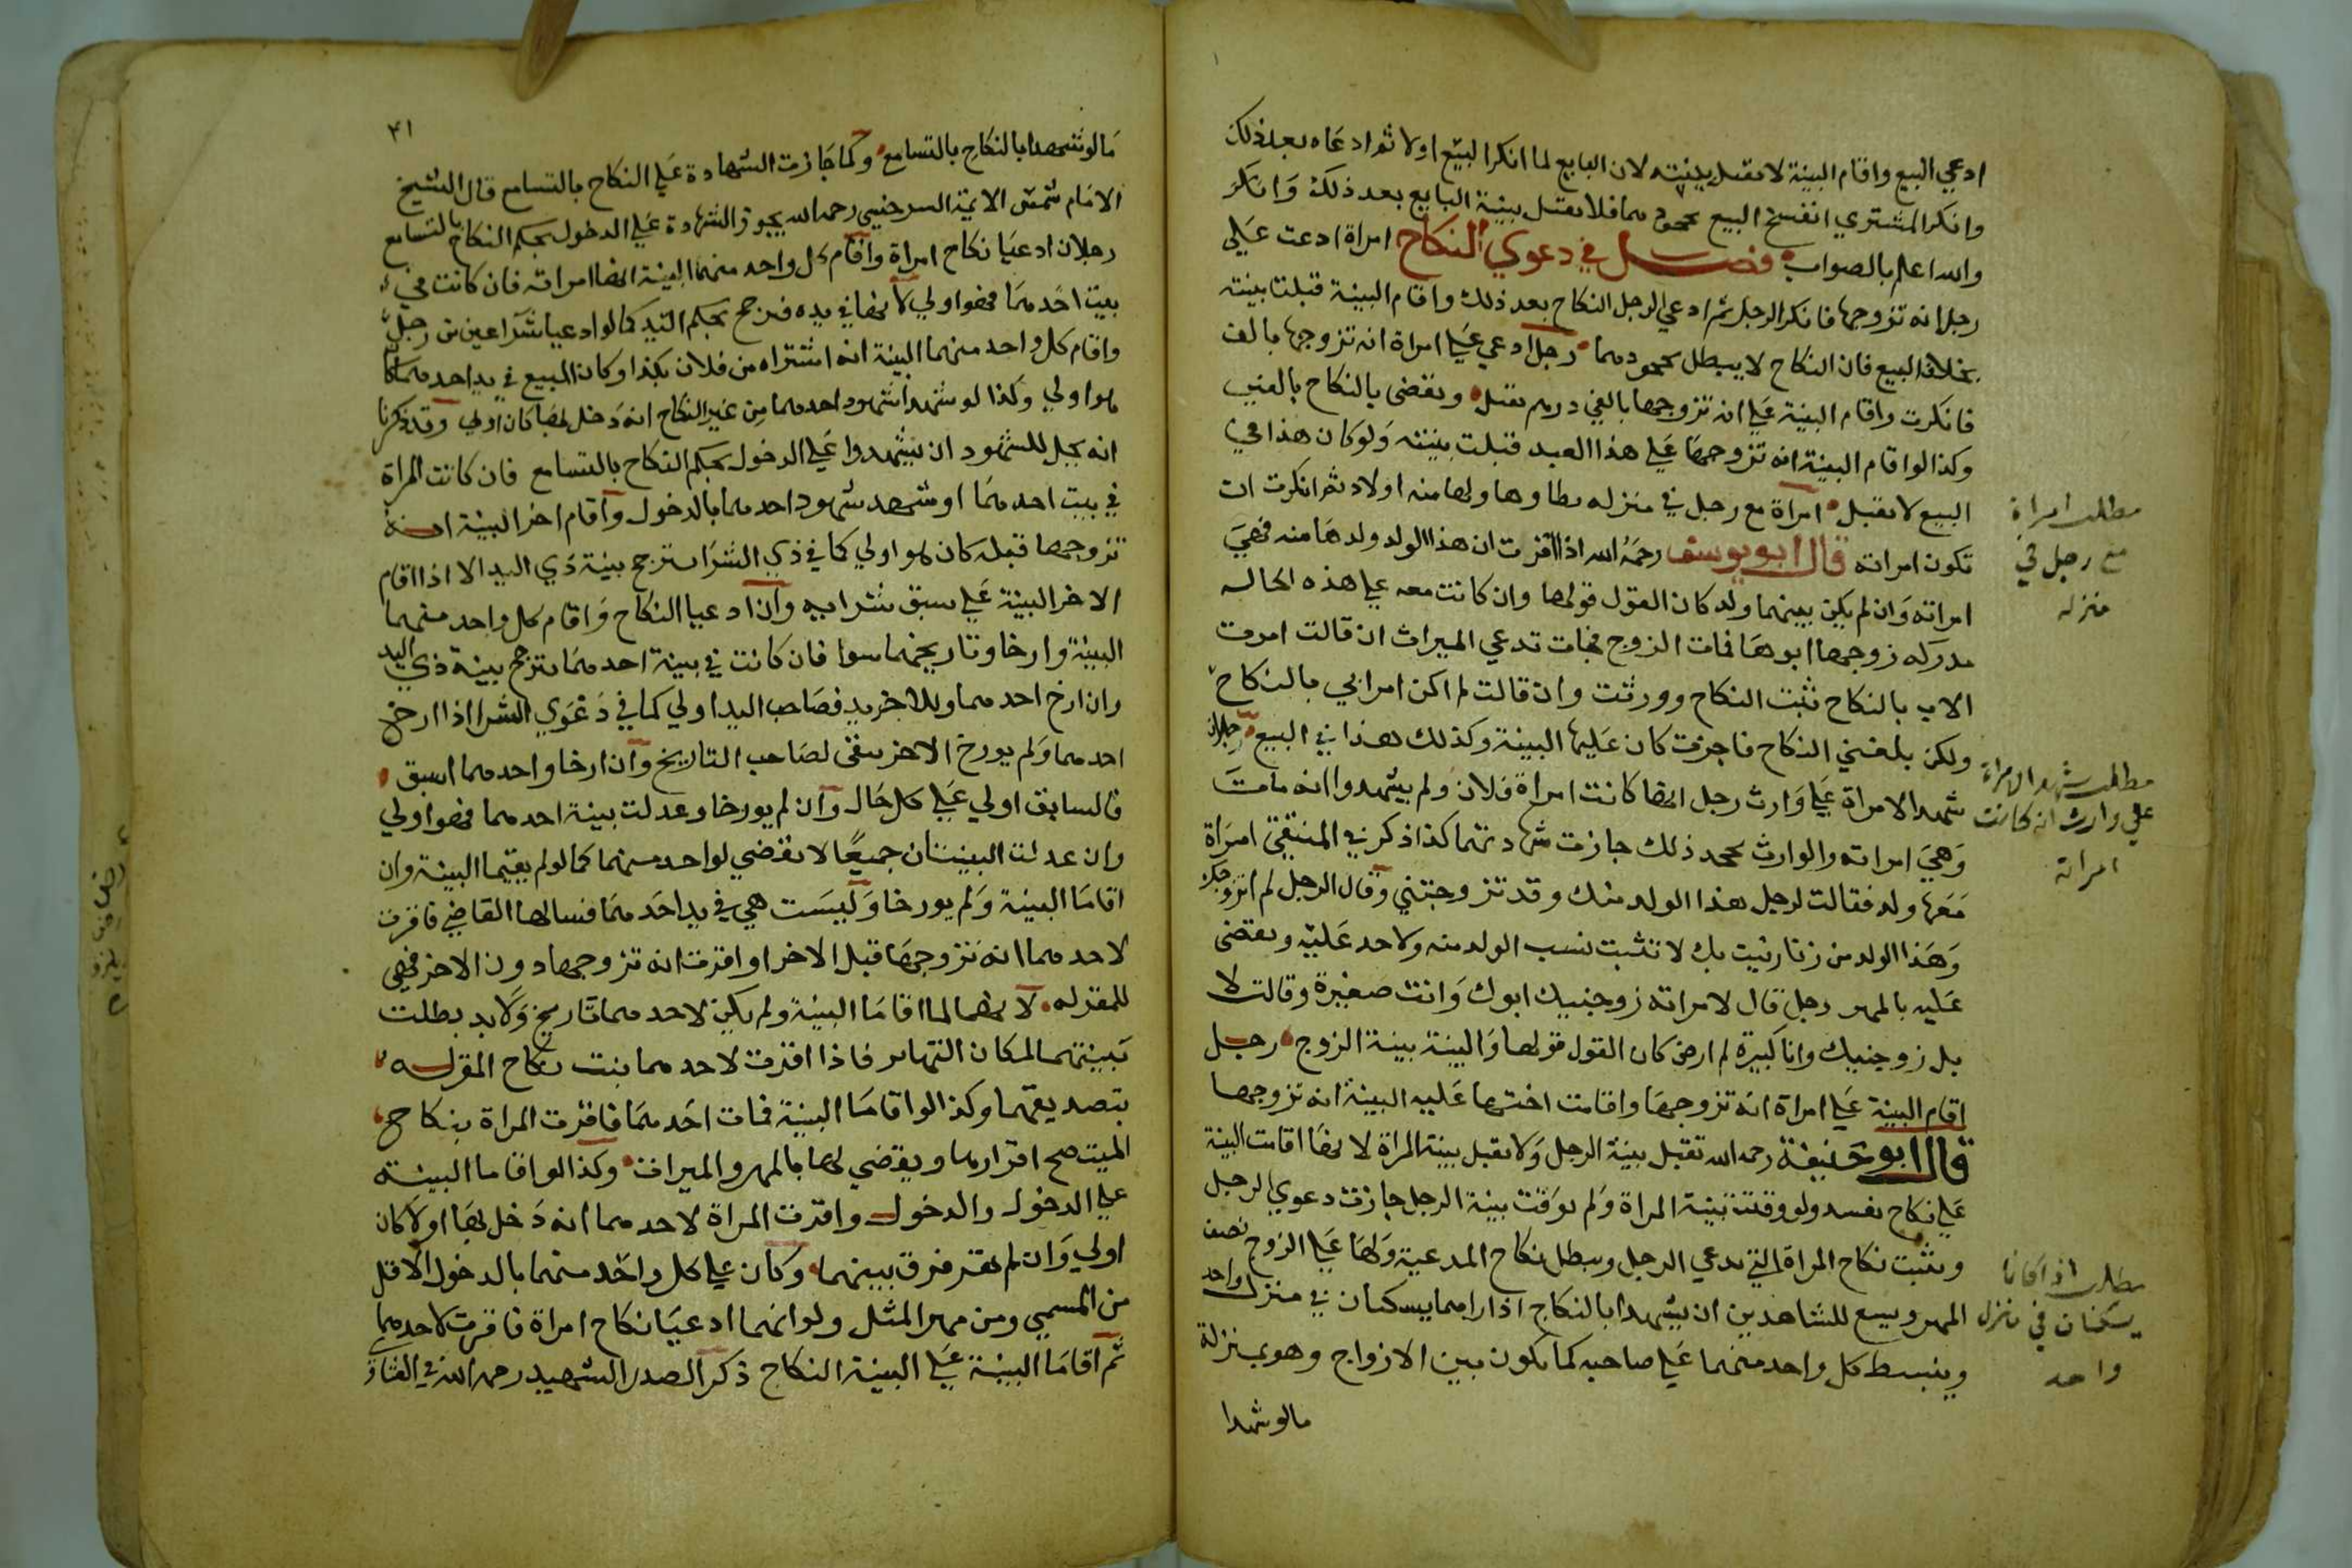 ادعي البيع واقام البينة لا تقبل بينته لان البايع لما انكر البيع اولا ثم ادعاه بعد ذلك
وانكر المشتري انفسخ البيع بجحودهما فلا تقبل بينة البايع بعد ذلك وانكر
والله اعلم بالصواب فصل في دعوي النكاح امراة ادعت علي
رجل انه تزوجها فانكر الرجل ثم ادعي الرجل النكاح بعد ذلك واقام البينة قبلت بينته
بخلاف البيع فان النكاح لا يبطل بجحودهما رجل ادعي علي امراة انه تزوجها بالف
فانكرت واقام البينة علي انه تزوجها بالفي درهم تقبل ويقضى بالنكاح بالفين
وكذا لو اقام البينة انه تزوجها علي هذا العبد قبلت بينته ولو كان هذا في
البيع لا تقبل امراة مع رجل في منزله يطاوها ولها منه اولاد ثم انكرت ان
تكون امراته قال ابو يوسف رحمه الله اذا اقرت ان هذا الولد ولدها منه فهي
امراته وان لم يكن بينهما ولد كان القول قولها وان كانت معه علي هذه الحاله
مدركه زوجها ابوها فمات الزوج فجات تدعي الميراث ان قالت امرت
الاب بالنكاح ثبت النكاح وورثت وان قالت لم اكن امر ابي بالنكاح
ولكن بلغني النكاح فاجزت كان عليها البينة وكذلك هذا في البيع رجلان
شهدا لامراة علي وارث رجل انها كانت امراة فلان ولم يشهدوا انه مات
وهي امراته والوارث يجحد ذلك جازت شهادتهما كذا ذكر في المنتقي امراة
معها ولد فقالت لرجل هذا الولد منك وقد تزوجتني وقال الرجل لم اتزوجك
وهذا الولد من زنا زنيت بك لا تثبت نسب الولد منه ولا حد عليه ويقضى
عليه بالمهر رجل قال لامراته زوجنيك ابوك وانت صغيرة وقالت لا
بل زوجنيك وانا كبيرة لم ارض كان القول قولها والبينة بينة الزوج رجل
اقام البينة علي امراة انه تزوجها واقامت اختها عليه البينة انه تزوجها
قال ابو حنيفة رحمه الله تقبل بينة الرجل ولا تقبل بينة المراة لانها اقامت البينة
علي نكاح نفسه ولو وقتت بينة المراة ولم توقت بينة الرجل جازت دعوي الرجل
ويثبت نكاح المراة التي تدعي الرجل ويبطل نكاح المدعية ولها علي الزوج نصف
المهر ويسع للشاهدين ان يشهدا بالنكاح اذا راهما يسكنان في منزل واحد
وينبسط كل واحد منهما علي صاحبه كما يكون بين الازواج وهو بمنزلة
مالو شهدا
مطلب امراة
مع رجل في
منزله
مطلب شهدا لامراة
علي وارث انه كانت
امراته
مطلب اذا كانا
يسكنان في منزل
واحد
٤١
مالو شهدا بالنكاح بالتسامع وكما جازت الشهادة علي النكاح بالتسامع قال الشيخ
الامام شمس الايمة السرخسي رحمه الله يجوز الشهادة علي الدخول بحكم النكاح بالتسامع
رجلان ادعيا نكاح امراة واقام كل واحد منهما البينة انها امراته فان كانت في
بيت احدهما فهو اولي لانها في يده فترجح بحكم اليد كما لو ادعيا شرا عين من رجل
واقام كل واحد منهما البينة انه اشتراه من فلان بكذا وكان المبيع في يد احدهما كان
هو اولي وكذا لو شهد شهود احدهما من غير النكاح انه دخل بها كان اولي وقد ذكرنا
انه يحل للشهود ان يشهدوا علي الدخول بحكم النكاح بالتسامع فان كانت المراة
في بيت احدهما او شهد شهود احدهما بالدخول واقام اخر البينة انه
تزوجها قبله كان هو اولي كما في ذي الشرا ترجح بينة ذي اليد الا اذا اقام
الاخر البينة علي سبق شرايه وان ادعيا النكاح واقام كل واحد منهما
البينة وارخا وتاريخهما سوا فان كانت في بينة احدهما ترجح بينة ذي اليد
وان ارخ احدهما وللاخر يد فصاحب اليد اولي كما في دعوي الشرا اذا ارخ
احدهما ولم يورخ الاخر يقضى لصاحب التاريخ وان ارخا واحدهما اسبق
فالسابق اولي علي كل حال وان لم يورخا وعدلت بينة احدهما فهو اولي
وان عدلت البينتان جميعا لا يقضي لواحد منهما كما لو لم يقيما البينة وان
اقاما البينة ولم يورخا وليست هي في يد احدهما فسالها القاضي فاقرت
لاحدهما انه تزوجها قبل الاخر او اقرت انه تزوجها دون الاخر فهي
للمقر له لانهما لما اقاما البينة ولم يكن لاحدهما تاريخ ولا يد بطلت
بينتهما لمكان التهاتر فاذا اقرت لاحدهما يثبت نكاح المقر له
بتصديقهما وكذا لو اقاما البينة فمات احدهما فاقرت المراة بنكاح
الميت صح اقرارها ويقضي لها بالمهر والميراث وكذا لو اقاما البينة
علي الدخول والدخول واقرت المراة لاحدهما انه دخل بها اولا كان
اولي وان لم تقر فرق بينهما وكان علي كل واحد منهما بالدخول الاقل
من المسمي ومن مهر المثل ولو انهما ادعيا نكاح امراة فاقرت لاحدهما
ثم اقاما البينة علي البينة النكاح ذكر الصدر الشهيد رحمه الله في